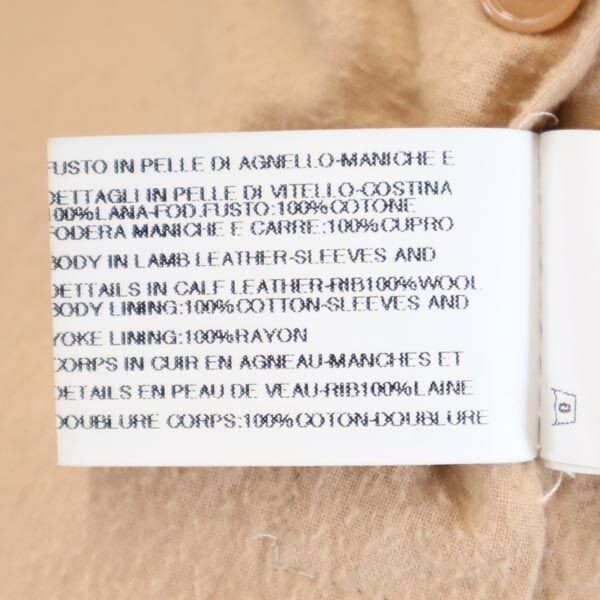 FUSTO IN PELLE DI AGNELLO-MANICHE E
DETTAGLI IN PELLE DI VITELLO-COSTINA
100%LANA-FOD.FUSTO:100%COTONE
FODERA MANICHE E CARRE:100%CUPRO
BODY IN LAMB LEATHER-SLEEVES AND
DETAILS IN CALF LEATHER-RIB100%WOOL
BODY LINING:100%COTTON-SLEEVES AND
YOKE LINING:100%RAYON
CORPS IN CUIR EN AGNEAU-MANCHES ET
DETAILS EN PEAU DE VEAU-RIB100%LAINE
DOUBLURE CORPS:100%COTON-DOUBLURE